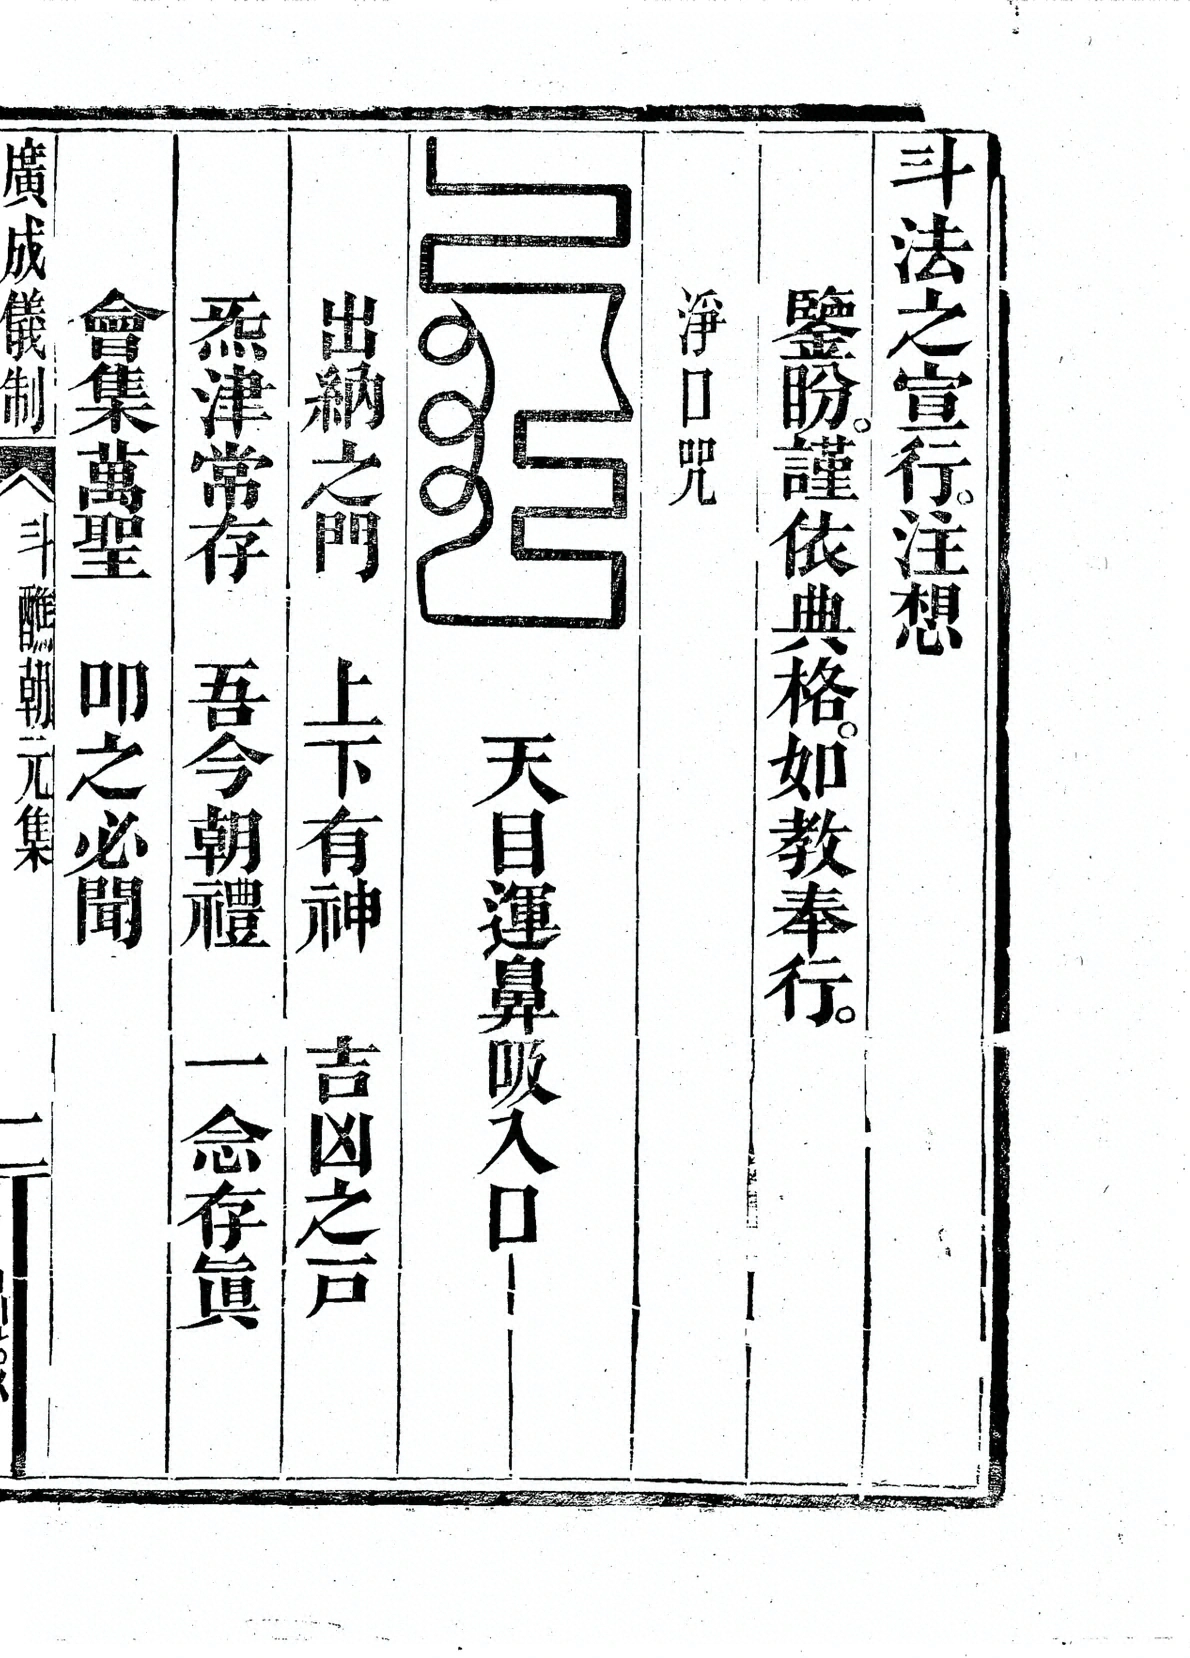 斗法之宣行。注想
鑒盼。謹依典格。如教奉行。
淨口咒
天目運鼻吸入口
出納之門　上下有神　吉凶之戸
炁津常存　吾今朝禮　一念存眞
會集萬聖　叩之必聞
廣成儀制　斗醮朝元集　二